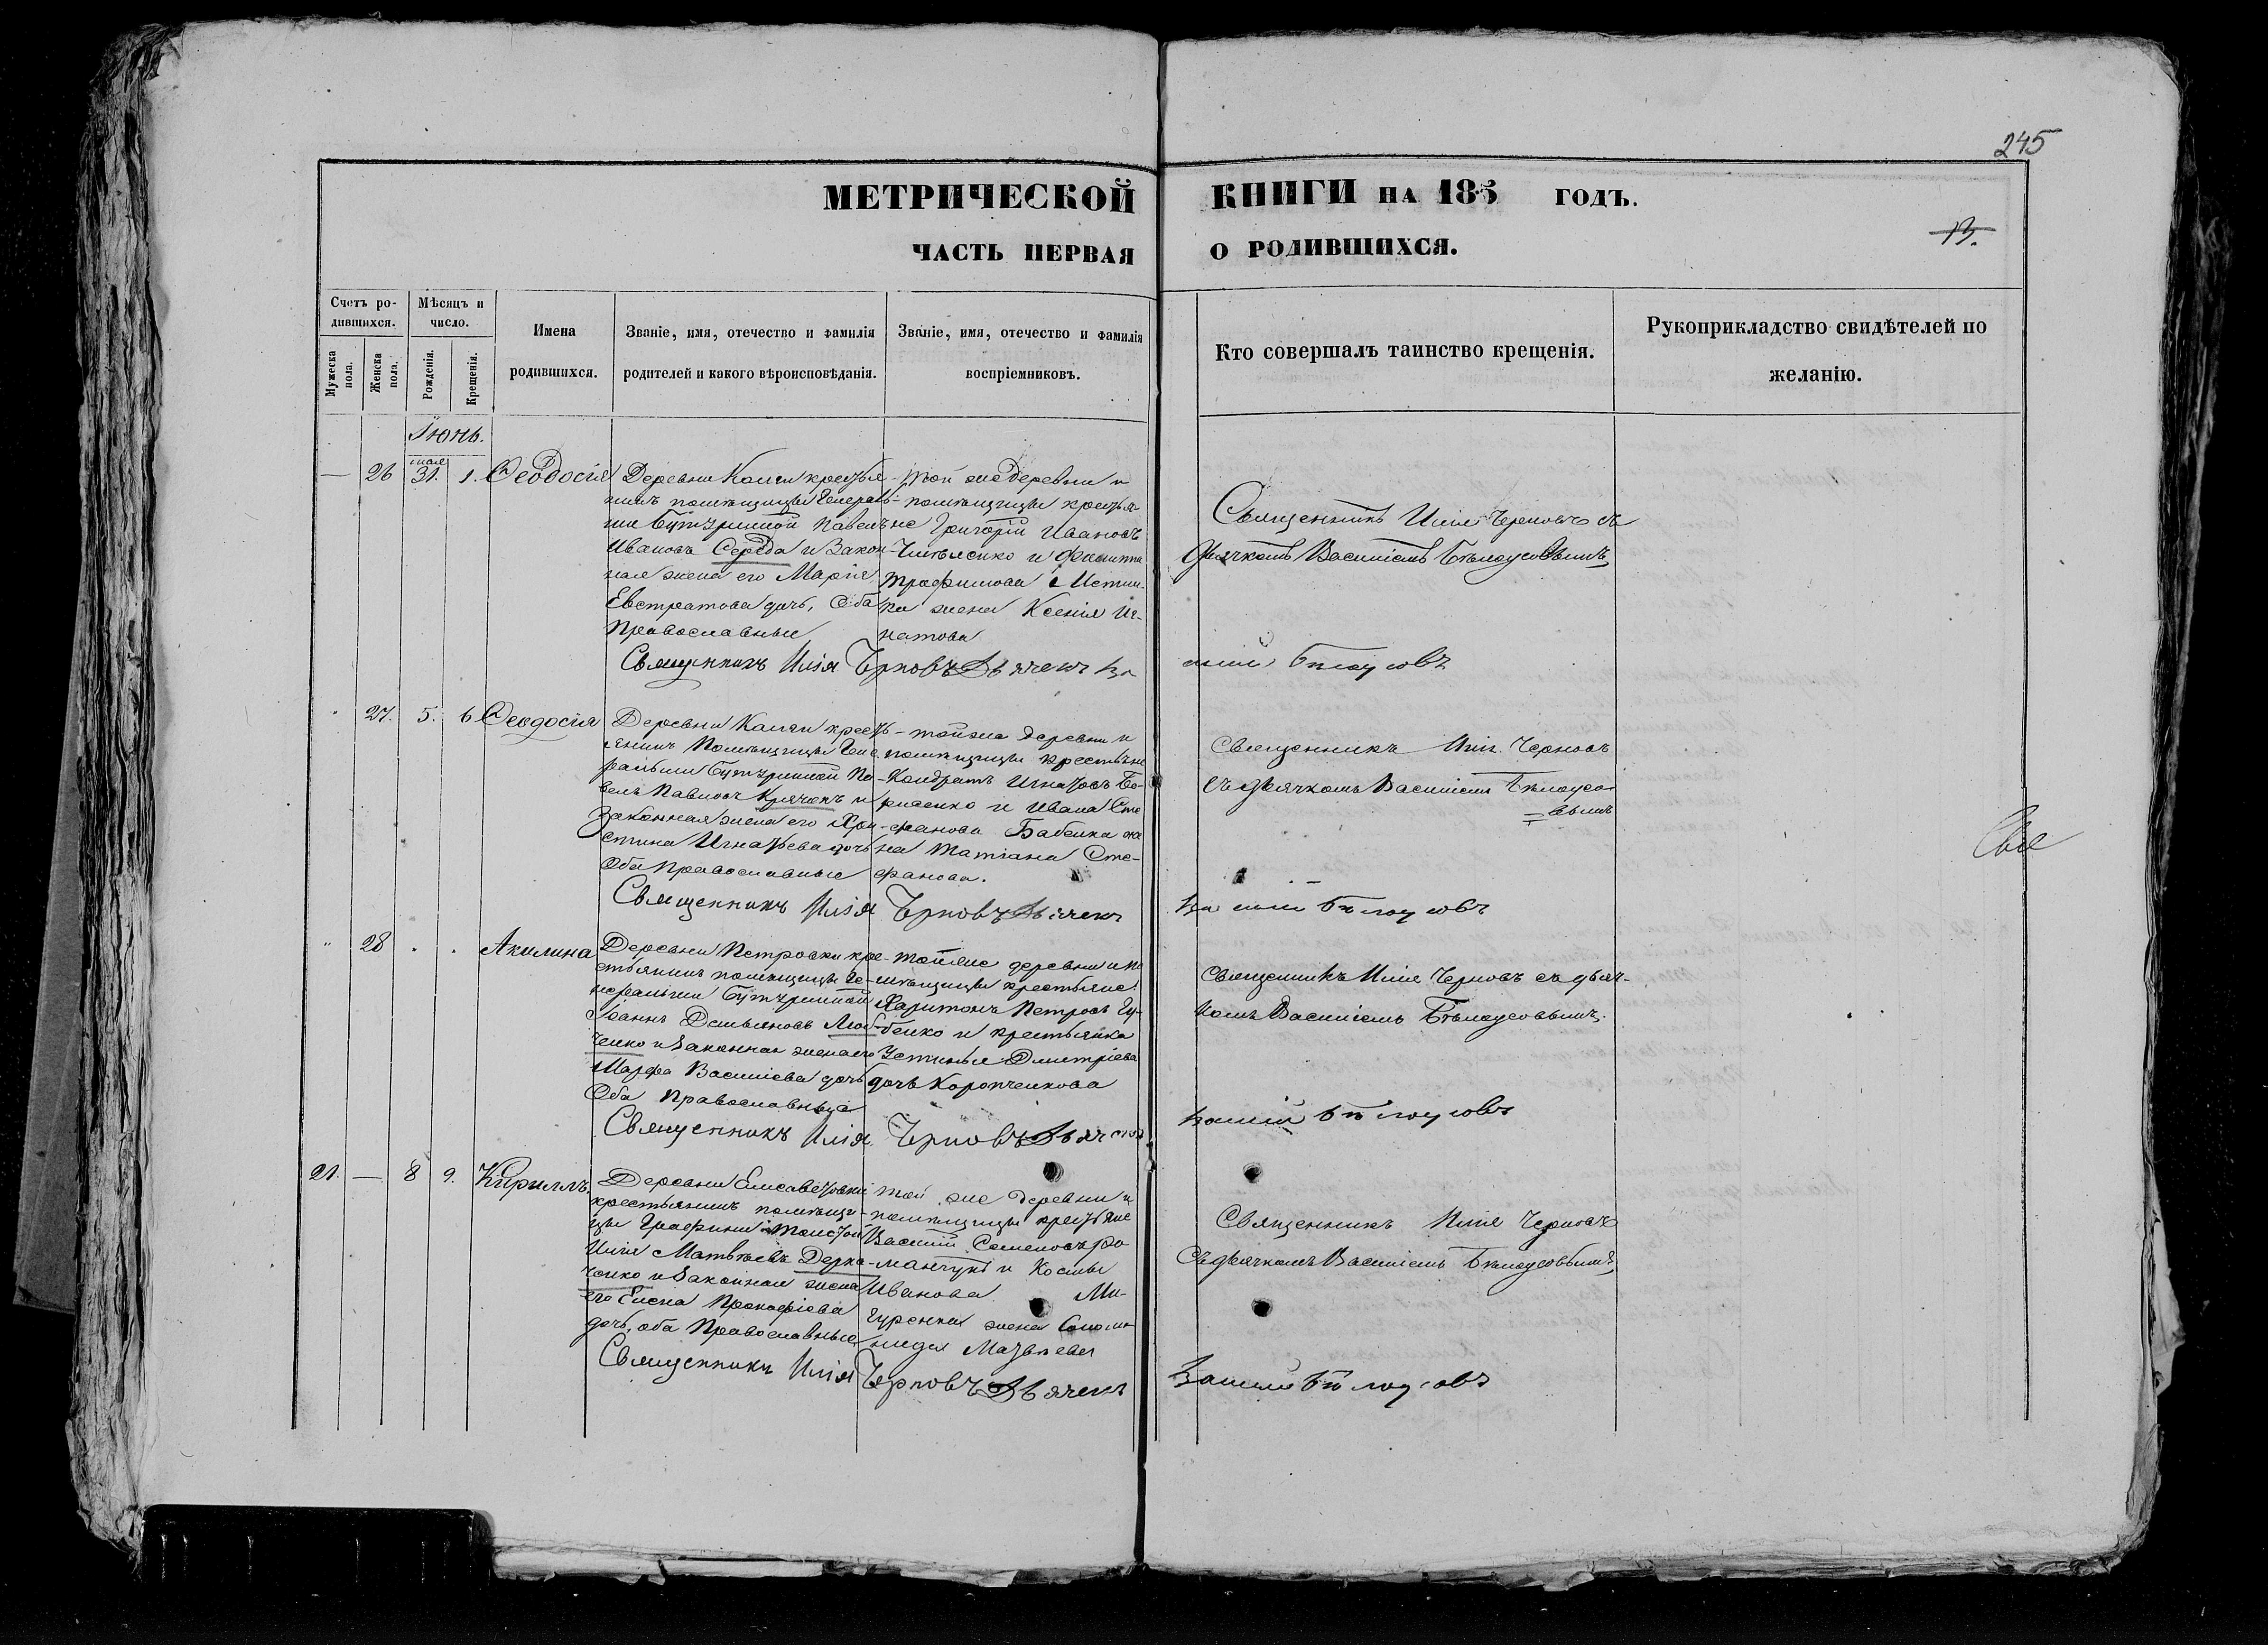 245
МЕТРИЧЕСКОЙ КНИГИ НА 185 ГОДЪ.
13.
ЧАСТЬ ПЕРВАЯ О РОДИВШИХСЯ.
Счетъ ро-
дившихся.
Мѣсяцъ и
число.
Мужеска
пола.
Женска
пола.
Рожденія.
Крещенія.
Имена
родившихся.
Званіе, имя, отечество и фамилія
родителей и какого вѣроисповѣданія.
Званіе, имя, отечество и фамилія
воспріемниковъ.
Кто совершалъ таинство крещенія.
Рукоприкладство свидѣтелей по
желанію.
Іюнь.
— 26 мая 31. 1. Ѳеодосія
Деревни крестья-
нинъ помѣщицы Генераль-
ши Бутуриной Павелъ
Ивановъ Середа и Закон-
ная жена его Марія
Евстратова дочь, Оба
Православные
той же деревни и
помѣщицы крестья-
не Григорій Ивановъ
и
Трофимова
жена Ксенія Иг-
натова
Священникъ Илія Черновъ съ
дьячкомъ Василіемъ Бѣлоусовымъ
Священникъ Илія Черновъ Дьячекъ Ва
силій Бѣлоусовъ
27. 5. 6 Ѳеодосія
Деревни кресть-
янинъ Помѣщицы Гене
ральши Бутуриной Па-
велъ Павловъ Крячокъ и
Законная жена его Хри-
стина Игнатьева дочь
Оба Православные
тойже деревни и
помѣщицы крестьяне
Кондратъ Игнатовъ Бо-
рисенко и Ивана Сте
фанова Бабенка же
на Татіана Сте-
фанова.
Священникъ Илія Черновъ
съ дьячкомъ Василіемъ Бѣлоусо
вымъ
Священникъ Илія Черновъ Дьячекъ
Ва силій Бѣлоусовъ
" 28 . . Акилина
Деревни Петровки кре-
стьянинъ помѣщицы Ге-
неральши Бутуриной
Іоаннъ Демьяновъ Люб-
ченко и Законная жена его
Марфа Василіева дочь
Оба Православные
тойже деревни и по
мѣщицы крестьяне
Харитонъ Петровъ Гу-
бенко и крестьянка
Устинья Димитріева
дочь Коропченкова
Священникъ Илія Черновъ съ дьяч-
комъ Василіемъ Бѣлоусовымъ.
Священникъ Илія Черновъ Дьячекъ
Василій Бѣлоусовъ
21. — 8 9. Кириллъ
Деревни Елисаветовки
крестьянинъ помѣщи-
цы Графини Толстой
Илія Матвѣевъ Дерка-
ченко и Законная жена
его Елена Прокофіева
дочь, оба Православные
той же деревни и
помѣщицы крестьяне
Василій Семеновъ Ро-
манчукъ и Космы
Иванова Ми-
гуренка жена Соломо
нида Матвѣева
Священникъ Илія Черновъ
съ дьячкомъ Василіемъ Бѣлоусовымъ
Священникъ Илія Черновъ Дьячекъ
Василій Бѣлоусовъ